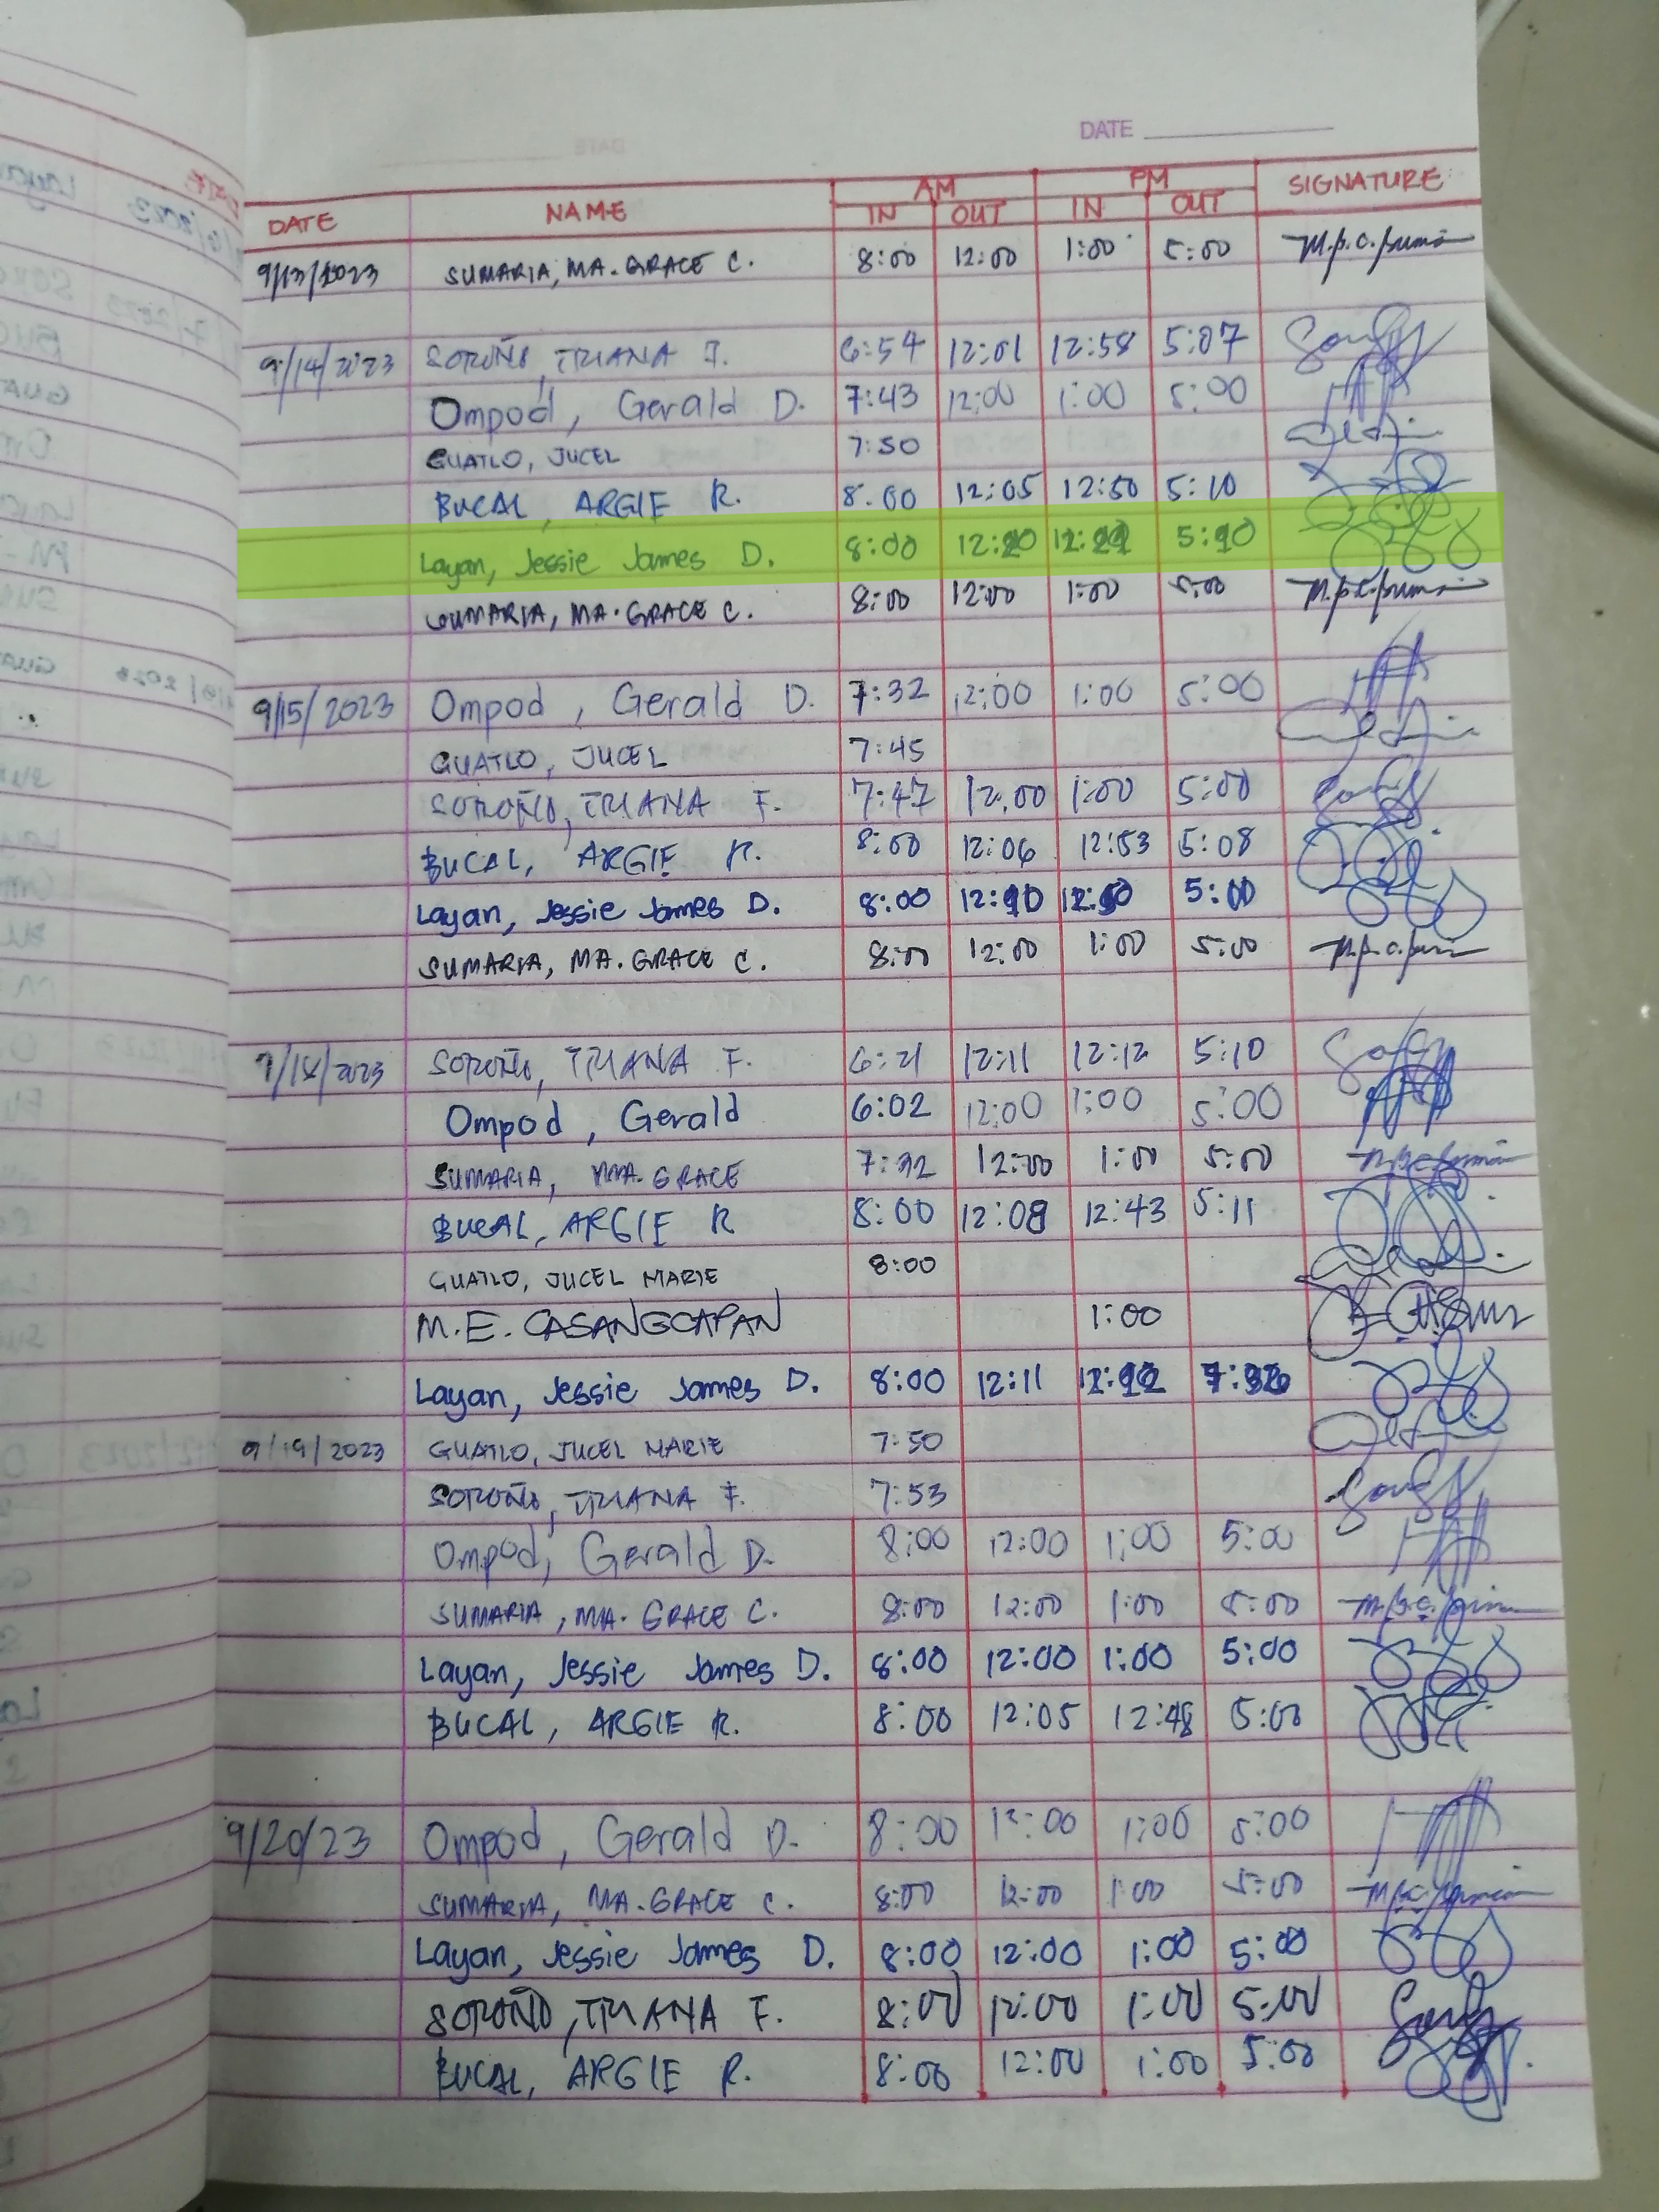 DATE
AM PM
DATE NAME IN OUT IN OUT SIGNATURE
9/13/2023 SUMARIA, MA. GRACE C. 8:00 12:00 1:00 5:00
9/14/2023 SOROÑO, TRIANA F. 6:54 12:01 12:58 5:07
Ompod, Gerald D. 7:43 12:00 1:00 5:00
GUATLO, JUCEL 7:50
BUCAL, ARGIE R. 8:00 12:05 12:50 5:10
Layan, Jessie James D. 8:00
SUMARIA, MA. GRACE C. 8:00 12:00 1:00 5:00
9/15/2023 Ompod, Gerald D. 7:32 12:00 1:00 5:00
GUATLO, JUCEL 7:45
SOROÑO, TRIANA F. 7:47 12:00 1:00 5:00
BUCAL, ARGIE R. 8:00 12:06 12:53 5:08
Layan, Jessie James D. 8:00 5:00
SUMARIA, MA. GRACE C. 8:00 12:00 1:00 5:00
9/18/2023 SOROÑO, TRIANA F. 6:21 12:11 12:12 5:10
Ompod, Gerald 6:02 12:00 1:00 5:00
SUMARIA, MA. GRACE 7:32 12:00 1:00 5:00
BUCAL, ARGIE R 8:00 12:08 12:43 5:11
GUATLO, JUCEL MARIE 8:00
M.E. CASANGCAPAN 1:00
Layan, Jessie James D. 8:00 12:11
9/19/2023 GUATLO, JUCEL MARIE 7:50
SOROÑO, TRIANA F. 7:53
Ompod, Gerald D. 8:00 12:00 1:00 5:00
SUMARIA, MA. GRACE C. 8:00 12:00 1:00 5:00
Layan, Jessie James D. 8:00 12:00 1:00 5:00
BUCAL, ARGIE R. 8:00 12:05 12:48 5:00
9/20/23 Ompod, Gerald D. 8:00 12:00 1:00 5:00
SUMARIA, MA. GRACE C. 8:00 12:00 1:00 5:00
Layan, Jessie James D. 8:00 12:00 1:00 5:00
SOROÑO, TRIANA F. 8:00 12:00 1:00 5:00
BUCAL, ARGIE R. 8:00 12:00 1:00 5:00